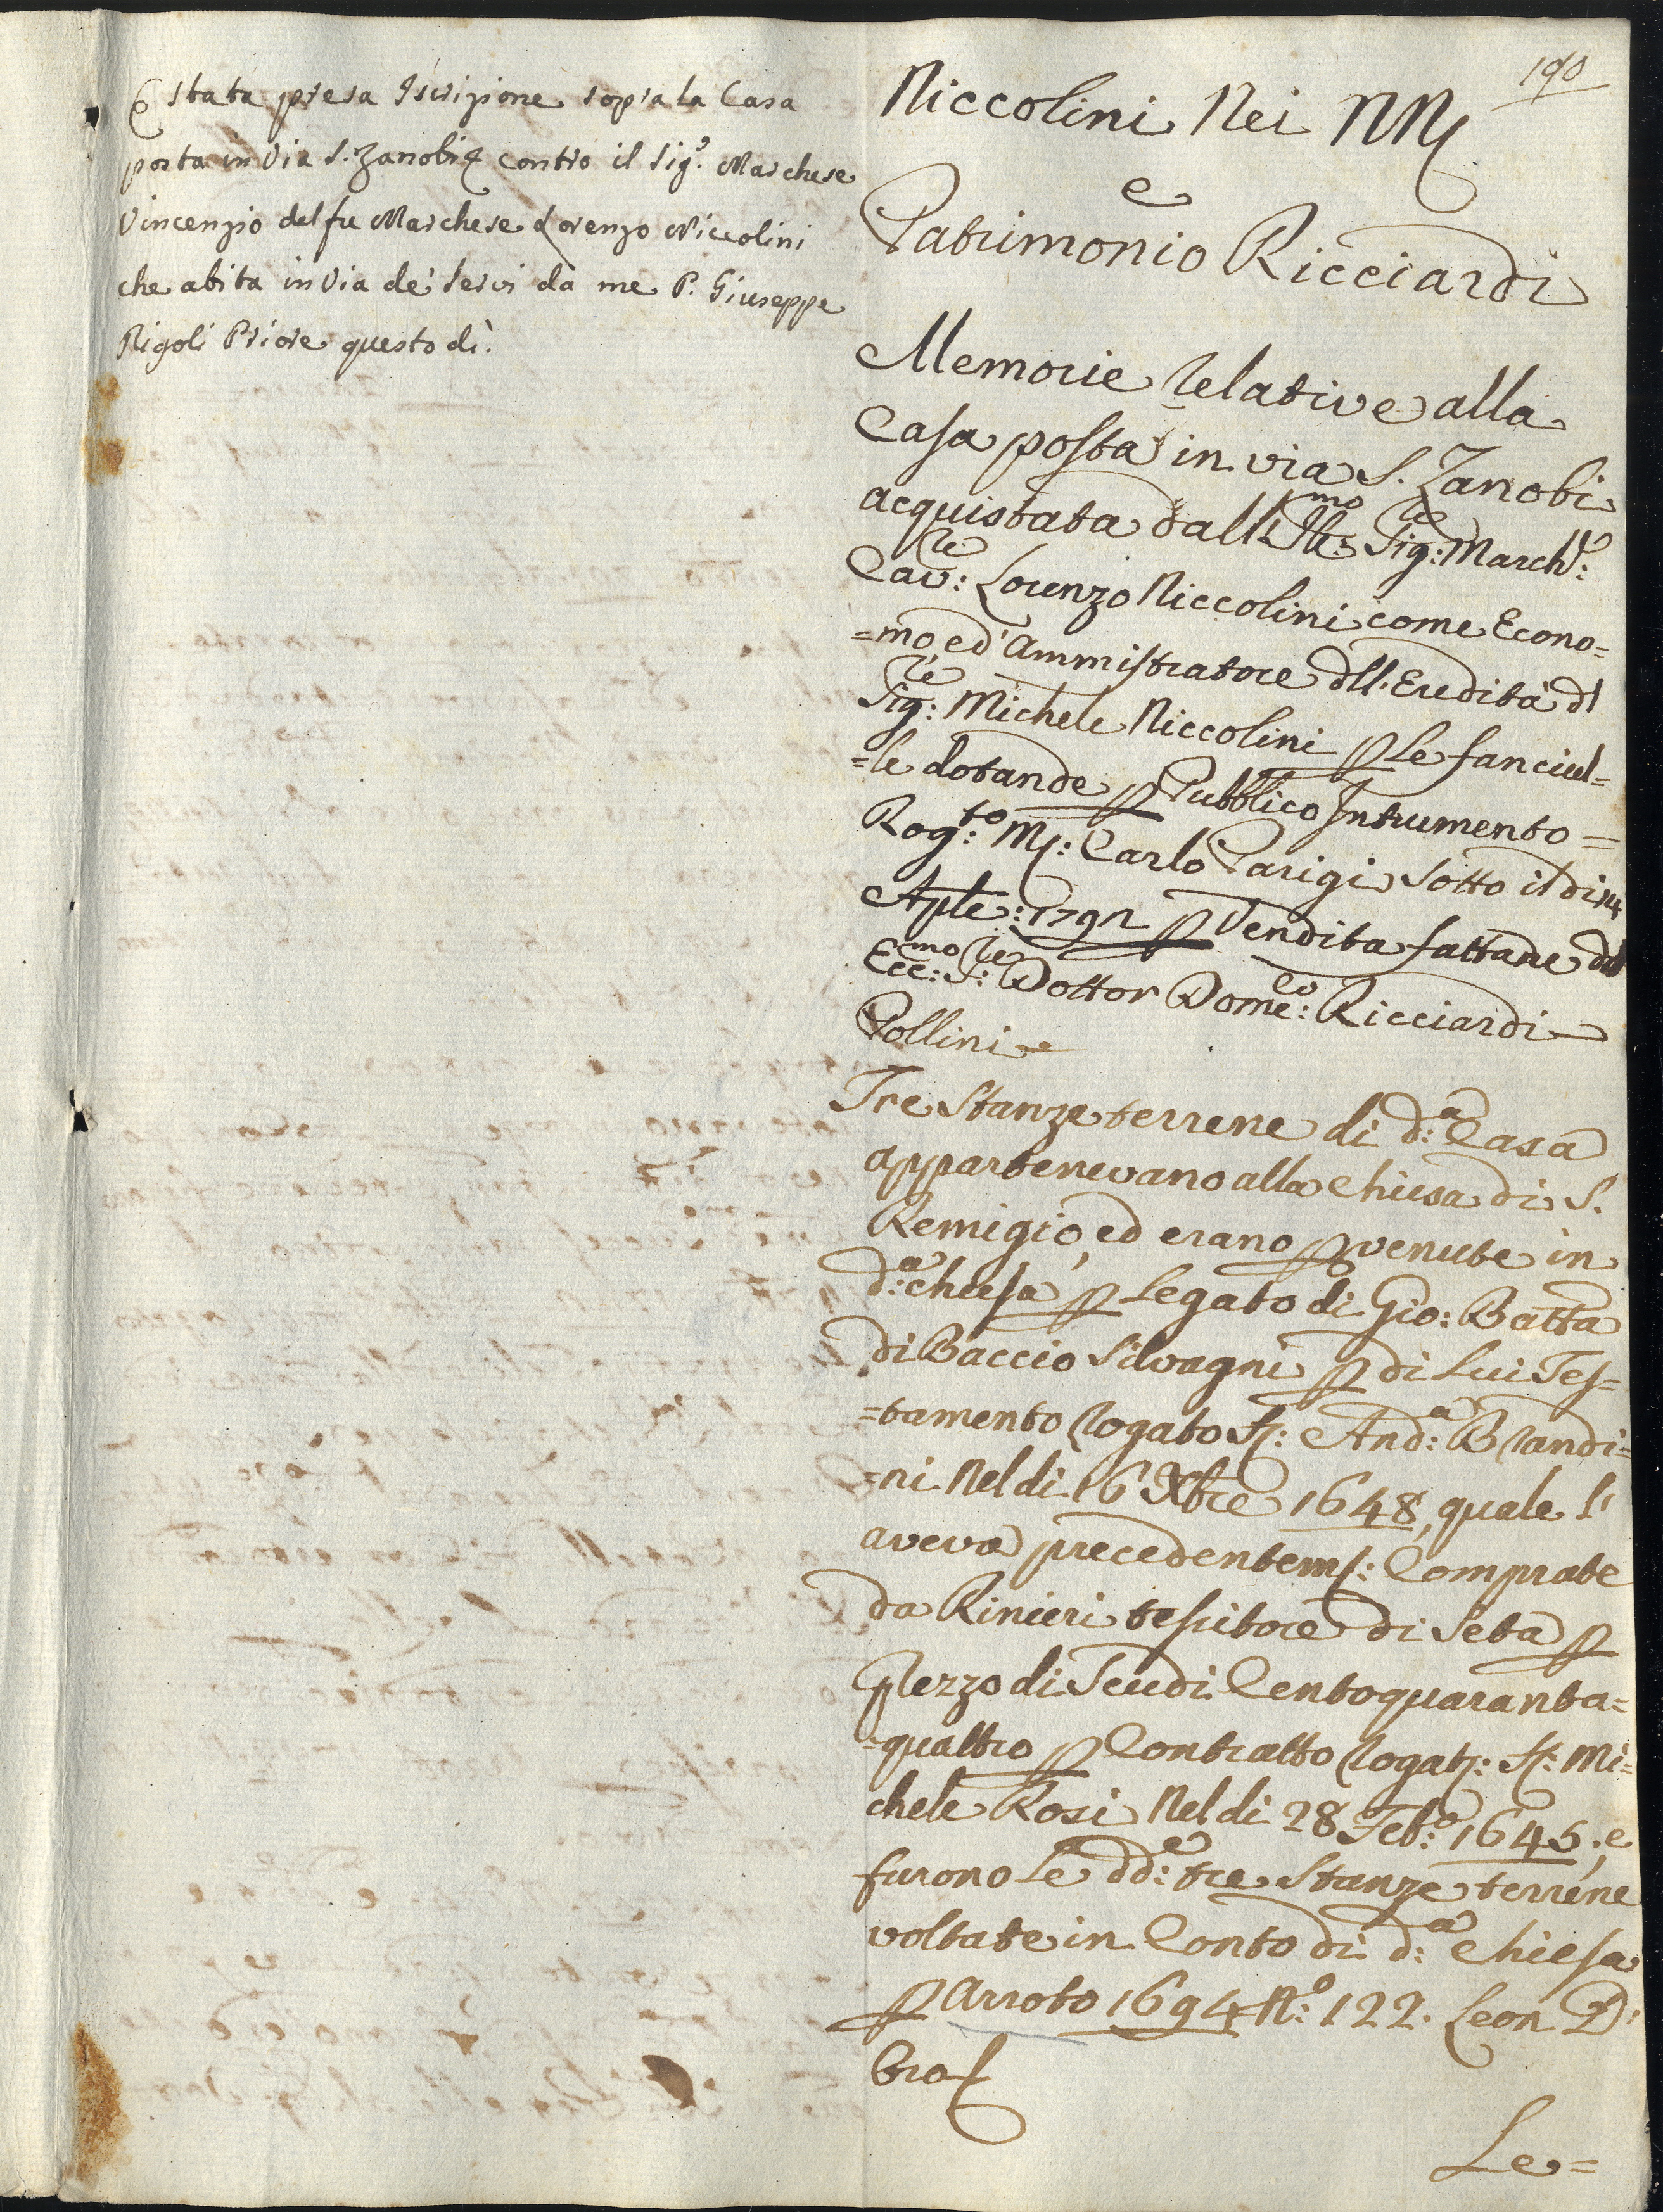 È stata presa Iscrizione sopra la Casa
posta in Via S. Zanobi contro il Sig.e Marchese
Vincenzio del fu Marchese Lorenzo Niccolini
che abita in Via de' Servi da me P. Giuseppe
Rigoli Priore questo dì.
190
Niccolini Nei NN
e
Patrimonio Ricciardi
Memorie relative alla
Casa posta in via S. Zanobi
acquistata dall Ill:mo Sig:re March:e
Cav:re Lorenzo Niccolini come Econo=
=mo ed' Ammistratore dll. Eredità dl
Sig:re Michele Niccolini p Le fanciul=
=le dotande p Pubblico Intrumento =
Rog:to M: Carlo Parigi sotto il di 14
Aple: 1792 p Vendita fattane dal
Ecc:mo S:re Dottor Dome:co Ricciardi
Pollini
Tre Stanze terrene di d:a Casa
appartenevano alla Chiesa di S.
Remigio, ed erano pvenute in
d:a chiesa p Legato di Gio: Batta
di Baccio Silvagni p di Lui Tes=
=tamento rogato S: And:a Brandi=
=ni Nel di 16 Xbre 1648, quale l'
aveva precedentem: Comprate
da Rinieri tessitore di Seta p
Prezzo di Scudi Centoquaranta=
=quattro p Contratto rogat: S: Mi=
chele Rosi Nel di 28 Feb:o 1645; e
furono le dd:e tre Stanze terrene
voltate in Conto di d:a Chiesa
p Arroto 1694 N:o 122. Leon D'
oro
Le=